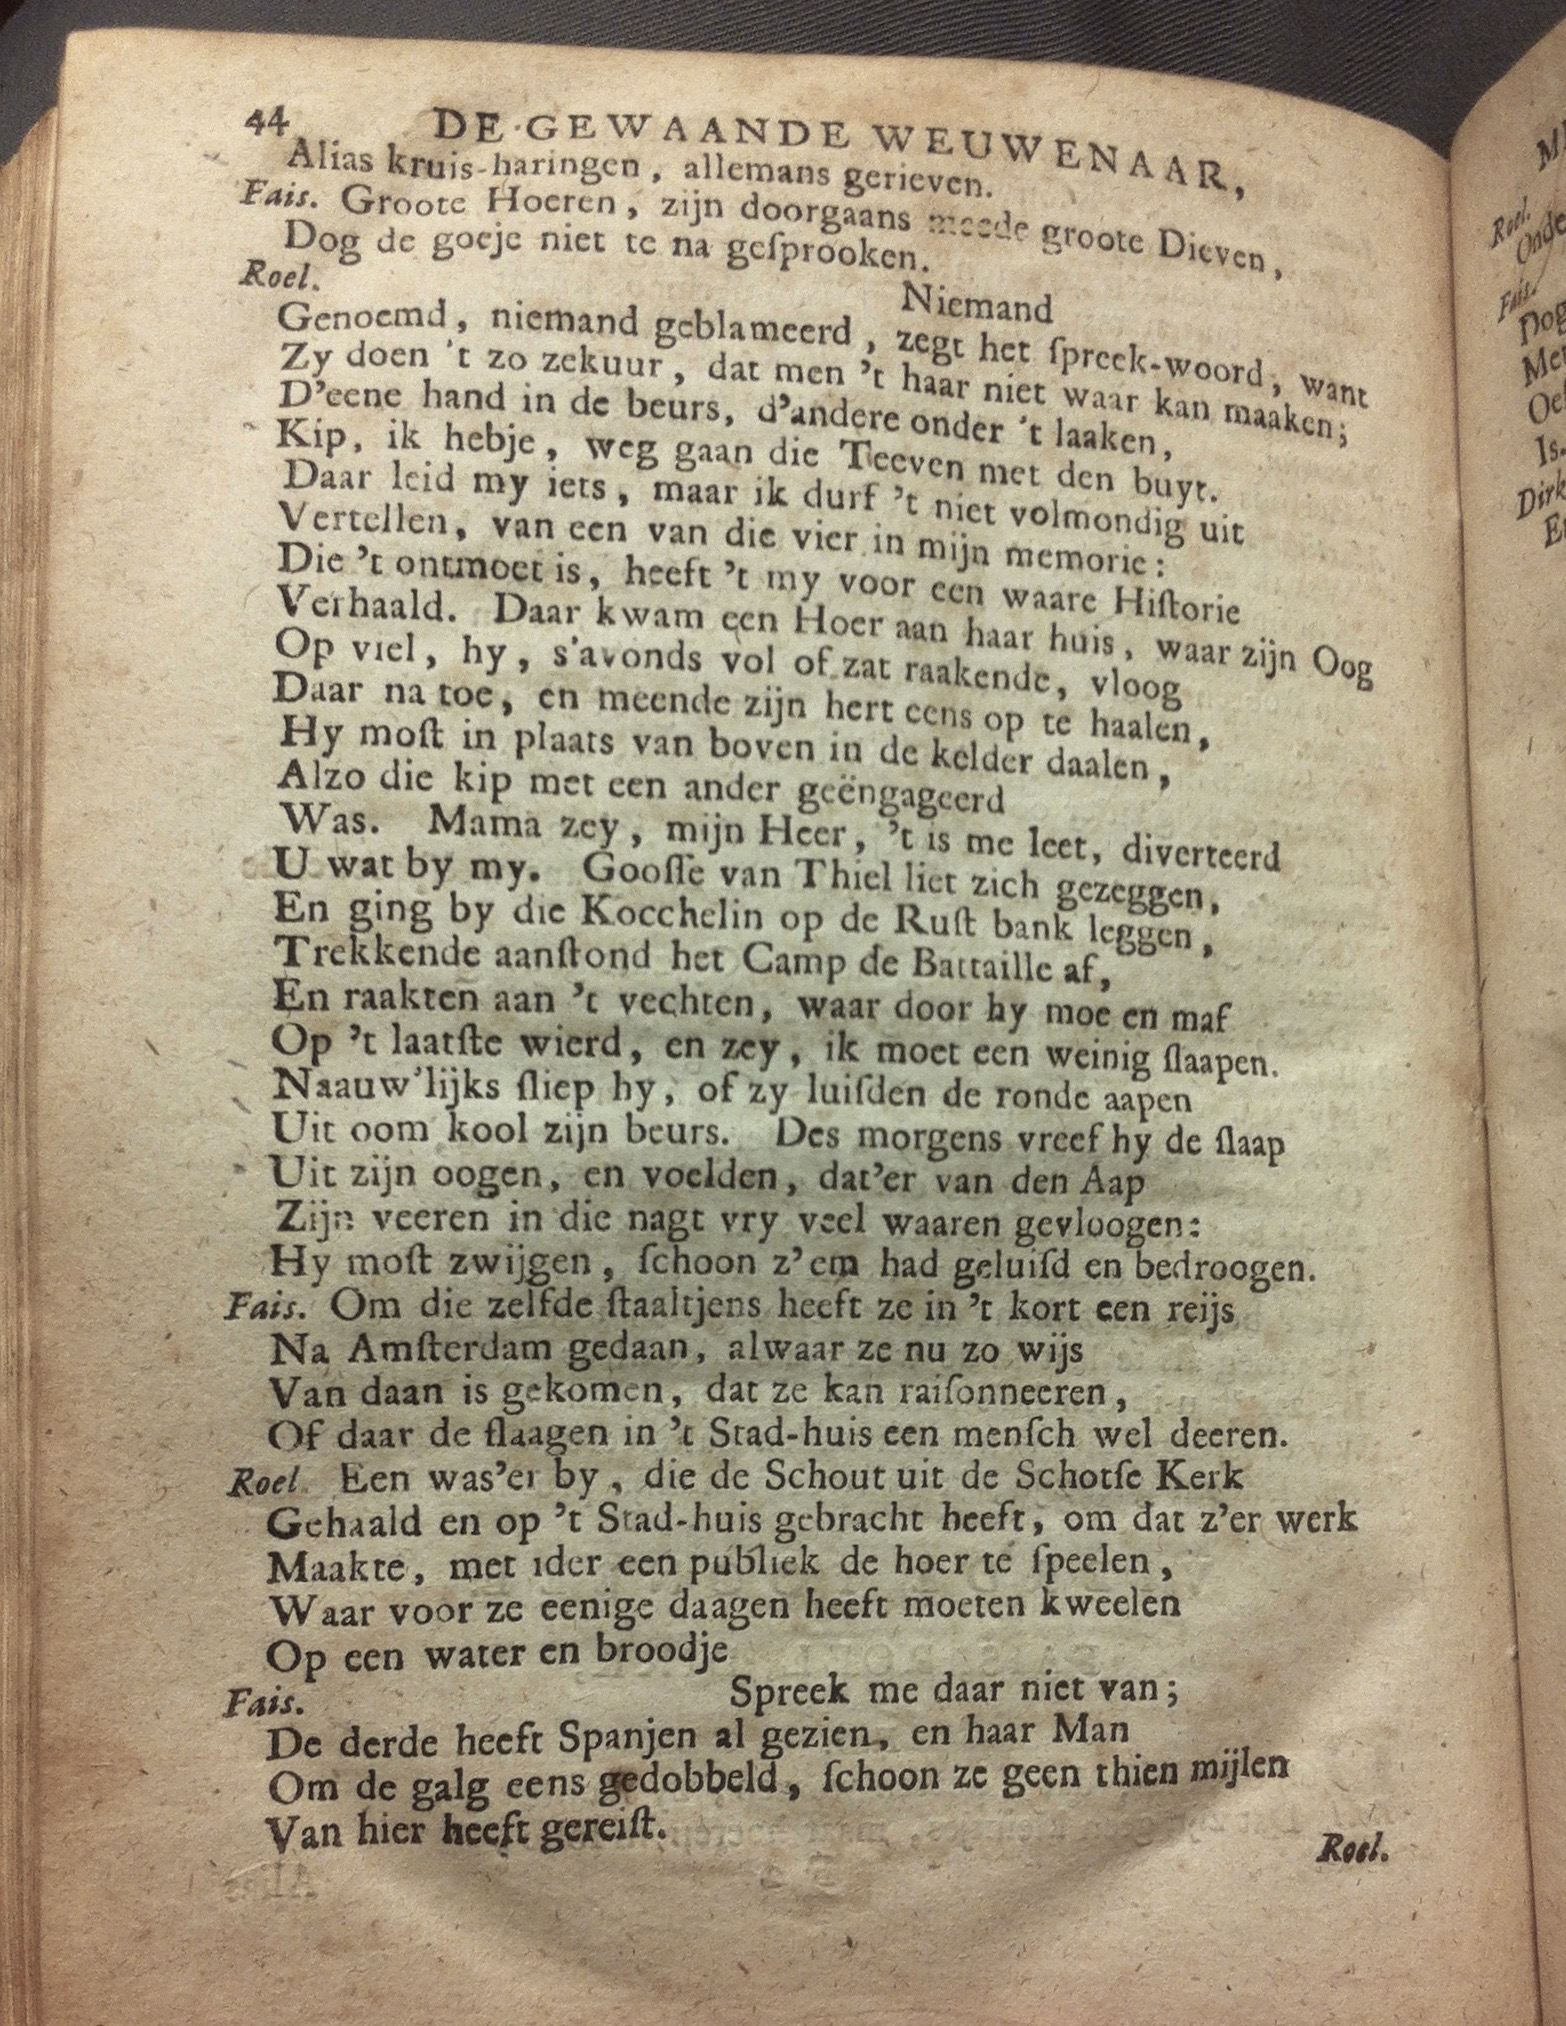 44 DE GEWAANDE WEUWENAAR,
Alias kruis-haringen, allemans gerieven.
Fais. Groote Hoeren, zijn doorgaans meede groote Dieven,
Dog de goeje niet te na geſprooken.
Roel. Niemand
Genoemd, niemand geblameerd, zegt het ſpreek-woord, want
Zy doen 't zo zekuur, dat men 't haar niet waar kan maaken;
D'eene hand in de beurs, d'andere onder 't laaken,
Kip, ik hebje, weg gaan die Teeven met den buyt.
Daar leid my iets, maar ik durf 't niet volmondig uit
Vertellen, van een van die vier in mijn memorie:
Die 't ontmoet is, heeft 't my voor een waare Hiſtorie
Verhaald. Daar kwam een Hoer aan haar huis, waar zijn Oog
Op viel, hy, s'avonds vol of zat raakende, vloog
Daar na toe, en meende zijn hert eens op te haalen,
Hy moſt in plaats van boven in de kelder daalen,
Alzo die kip met een ander geëngageerd
Was. Mama zey, mijn Heer, 't is me leet, diverteerd
U wat by my. Gooſſe van Thiel liet zich gezeggen,
En ging by die Kocchelin op de Ruſt bank leggen,
Trekkende aanſtond het Camp de Battaille af,
En raakten aan 't vechten, waar door hy moe en maf
Op 't laatſte wierd, en zey, ik moet een weinig ſlaapen.
Naauw'lijks ſliep hy, of zy luiſden de ronde aapen
Uit oom kool zijn beurs. Des morgens vreef hy de ſlaap
Uit zijn oogen, en voelden, dat'er van den Aap
Zijn veeren in die nagt vry veel waaren gevloogen:
Hy moſt zwijgen, ſchoon z'em had geluiſd en bedroogen.
Fais. Om die zelfde ſtaaltjens heeft ze in 't kort een reijs
Na Amſterdam gedaan, alwaar ze nu zo wijs
Van daan is gekomen, dat ze kan raiſonneeren,
Of daar de ſlaagen in 't Stad-huis een menſch wel deeren.
Roel. Een was'er by, die de Schout uit de Schotſe Kerk
Gehaald en op 't Stad-huis gebracht heeft, om dat z'er werk
Maakte, met ider een publiek de hoer te ſpeelen,
Waar voor ze eenige daagen heeft moeten kweelen
Op een water en broodje
Fais. Spreek me daar niet van;
De derde heeft Spanjen al gezien, en haar Man
Om de galg eens gedobbeld, ſchoon ze geen thien mijlen
Van hier heeft gereiſt.
Roel.
Onde
Fais.
Dog
Is.
Dirk
Roel.